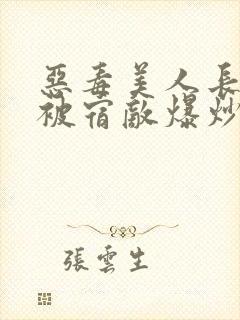 惡毒美人長
被宿敵爆炒
張雲生